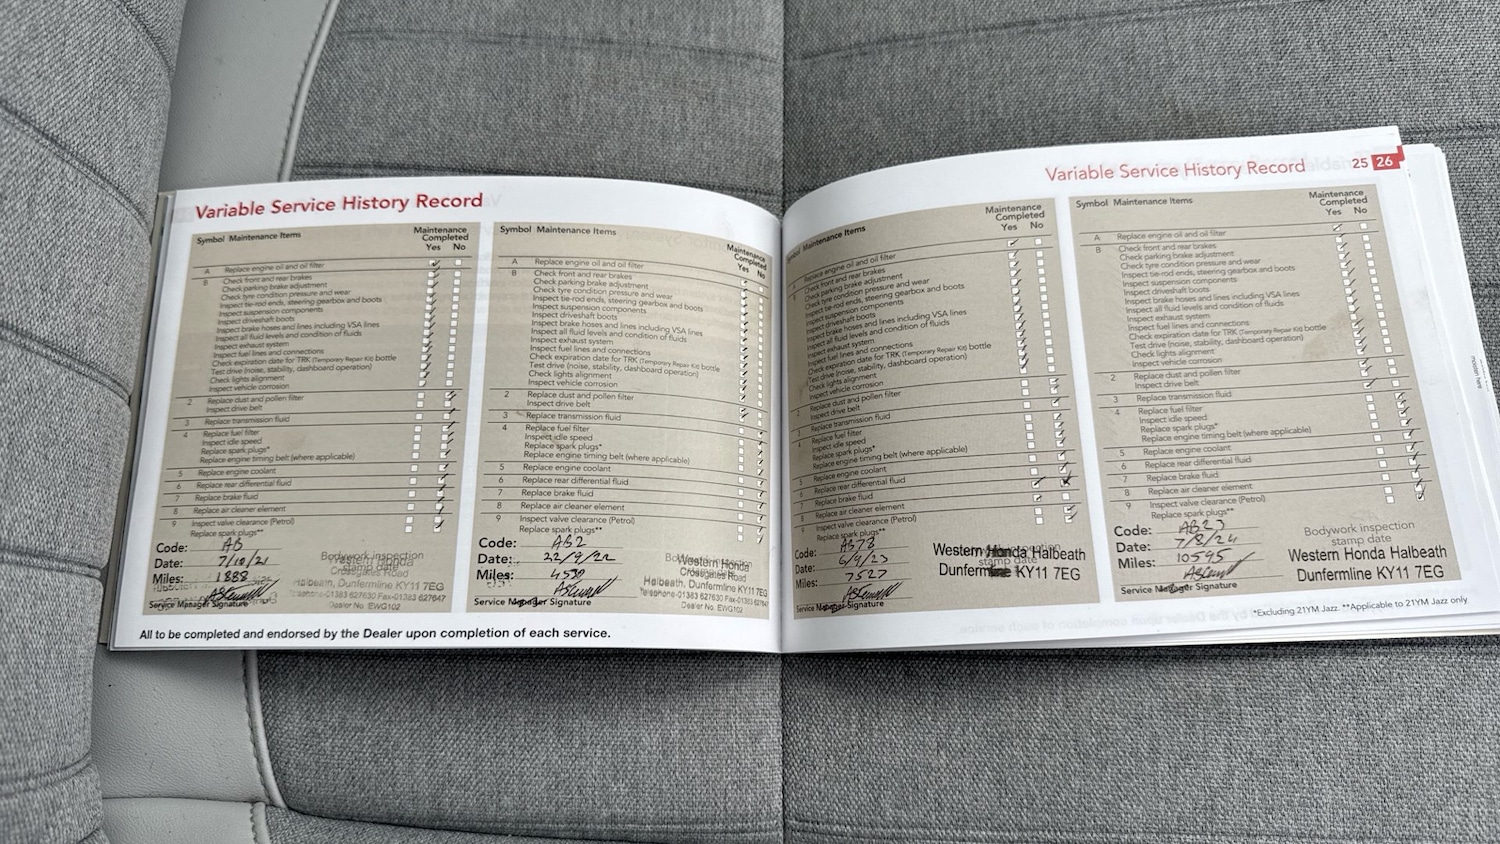 Variable Service History Record
Symbol Maintenance Items
Maintenance
Completed
Yes No
A Replace engine oil and oil filter
B Check front and rear brakes
Check parking brake adjustment
Check tyre condition pressure and wear
Inspect tie-rod ends, steering gearbox and boots
Inspect suspension components
Inspect driveshaft boots
Inspect brake hoses and lines including VSA lines
Inspect all fluid levels and condition of fluids
Inspect exhaust system
Inspect fuel lines and connections
Check expiration date for TRK (Temporary Repair Kit) bottle
Test drive (noise, stability, dashboard operation)
Check lights alignment
Inspect vehicle corrosion
2 Replace dust and pollen filter
Inspect drive belt
3 Replace transmission fluid
4 Replace fuel filter
Inspect idle speed
Replace spark plugs*
Replace engine timing belt (where applicable)
5 Replace engine coolant
6 Replace rear differential fluid
7 Replace brake fluid
8 Replace air cleaner element
9 Inspect valve clearance (Petrol)
Replace spark plugs**
Code: AB
Date: 7/10/21
Miles: 1888
Service Manager Signature
Bodywork inspection
stamp date
Western Honda
Crossgates Road
Halbeath, Dunfermline KY11 7EG
Telephone-01383 627630 Fax-01383 627647
Dealer No. EWG102
Symbol Maintenance Items
Maintenance
Completed
Yes No
A Replace engine oil and oil filter
B Check front and rear brakes
Check parking brake adjustment
Check tyre condition pressure and wear
Inspect tie-rod ends, steering gearbox and boots
Inspect suspension components
Inspect driveshaft boots
Inspect brake hoses and lines including VSA lines
Inspect all fluid levels and condition of fluids
Inspect exhaust system
Inspect fuel lines and connections
Check expiration date for TRK (Temporary Repair Kit) bottle
Test drive (noise, stability, dashboard operation)
Check lights alignment
Inspect vehicle corrosion
2 Replace dust and pollen filter
Inspect drive belt
3 Replace transmission fluid
4 Replace fuel filter
Inspect idle speed
Replace spark plugs*
Replace engine timing belt (where applicable)
5 Replace engine coolant
6 Replace rear differential fluid
7 Replace brake fluid
8 Replace air cleaner element
9 Inspect valve clearance (Petrol)
Replace spark plugs**
Code: AB2
Date: 22/9/22
Miles: 4530
Service Manager Signature
Western Honda
Crossgates Road
Halbeath, Dunfermline KY11 7EG
Telephone-01383 627630 Fax-01383 62764
Dealer No. EWG102
All to be completed and endorsed by the Dealer upon completion of each service.
Variable Service History Record 25 26
Maintenance Items
Maintenance
Completed
Yes No
Replace engine oil and oil filter
Check front and rear brakes
Check parking brake adjustment
Check tyre condition pressure and wear
Inspect tie-rod ends, steering gearbox and boots
Inspect suspension components
Inspect driveshaft boots
Inspect brake hoses and lines including VSA lines
Inspect all fluid levels and condition of fluids
Inspect exhaust system
Inspect fuel lines and connections
Check expiration date for TRK (Temporary Repair Kit) bottle
Test drive (noise, stability, dashboard operation)
Check lights alignment
Inspect vehicle corrosion
Replace dust and pollen filter
Inspect drive belt
Replace transmission fluid
Replace fuel filter
Inspect idle speed
Replace spark plugs*
Replace engine timing belt (where applicable)
Replace engine coolant
Replace rear differential fluid
Replace brake fluid
Replace air cleaner element
Inspect valve clearance (Petrol)
Replace spark plugs**
Code: AB78
Date: 6/9/23
Miles: 7527
Service Manager Signature
stamp date
Western Honda Halbeath
Dunfermline KY11 7EG
Symbol Maintenance Items
Maintenance
Completed
Yes No
A Replace engine oil and oil filter
B Check front and rear brakes
Check parking brake adjustment
Check tyre condition pressure and wear
Inspect tie-rod ends, steering gearbox and boots
Inspect suspension components
Inspect driveshaft boots
Inspect brake hoses and lines including VSA lines
Inspect all fluid levels and condition of fluids
Inspect exhaust system
Inspect fuel lines and connections
Check expiration date for TRK (Temporary Repair Kit) bottle
Test drive (noise, stability, dashboard operation)
Check lights alignment
Inspect vehicle corrosion
2 Replace dust and pollen filter
Inspect drive belt
3 Replace transmission fluid
4 Replace fuel filter
Inspect idle speed
Replace spark plugs*
Replace engine timing belt (where applicable)
5 Replace engine coolant
6 Replace rear differential fluid
7 Replace brake fluid
8 Replace air cleaner element
9 Inspect valve clearance (Petrol)
Replace spark plugs**
Code: AB23
Date: 7/8/24
Miles: 10595
Service Manager Signature
Bodywork inspection
stamp date
Western Honda Halbeath
Dunfermline KY11 7EG
*Excluding 21YM Jazz. **Applicable to 21YM Jazz only